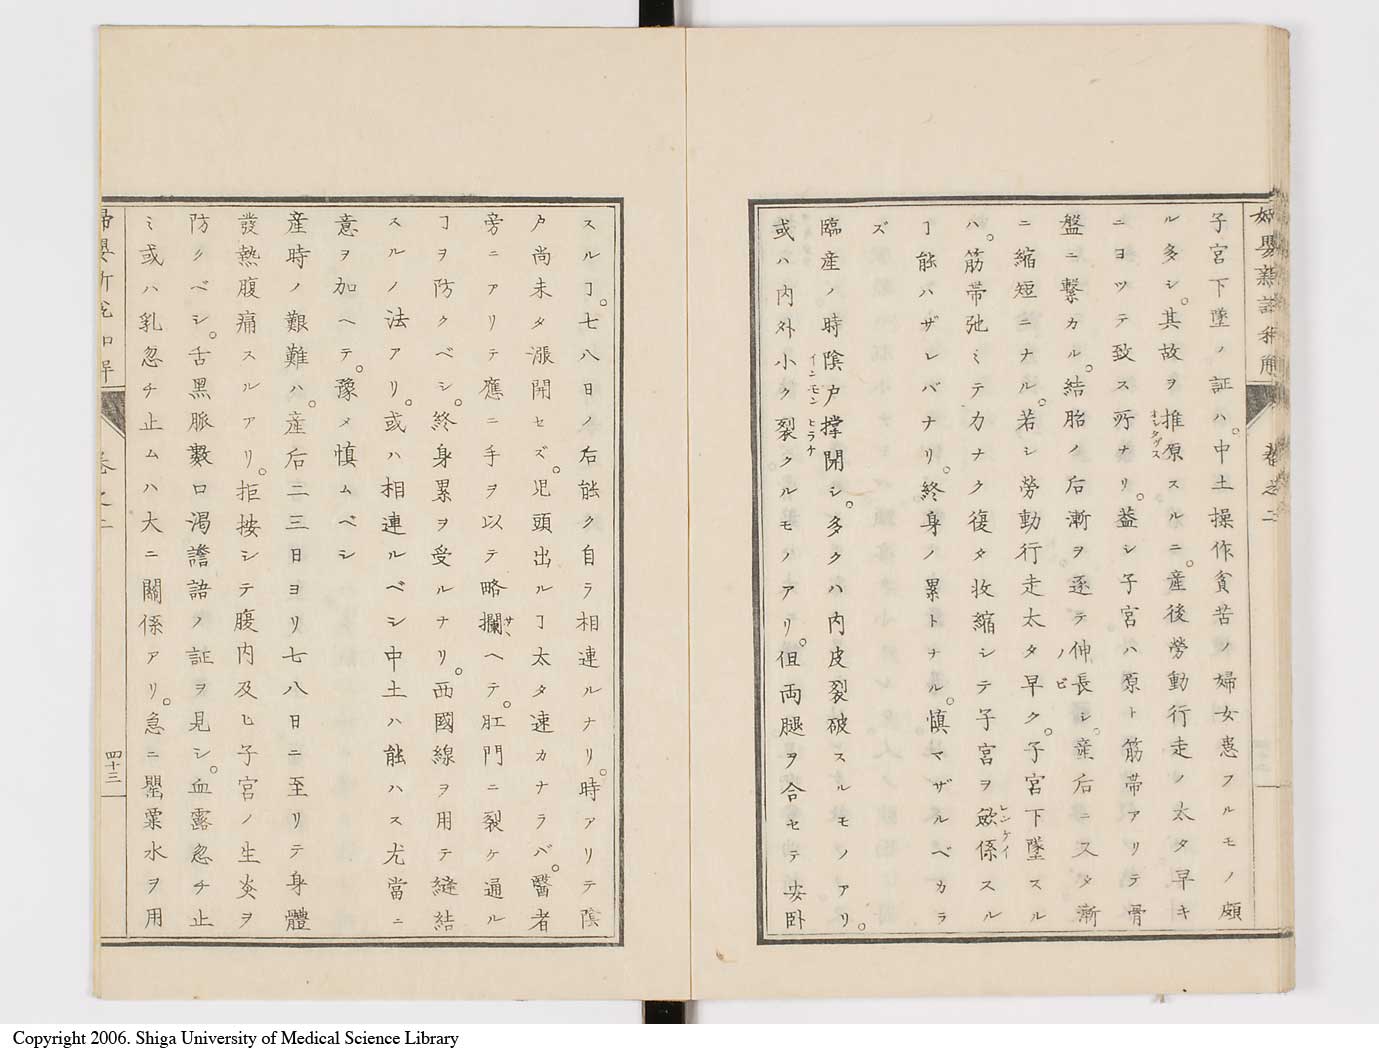 子宮下墜ノ証ハ。中土操作貧苦ノ婦女患フルモノ頗
ル多シ。其故ヲ推原スルニ。産後勞動行走ノ太タ早キ
ニヨツテ致ス所ナリ。葢シ子宮ハ原ト筋帯アリテ骨
盤ニ繋カル。結胎ノ后漸ヲ逐テ伸長シ。産后ニ又タ漸
ニ縮短ニナル。若シ勞動行走太タ早ク。子宮下墜スル
ハ。筋帯弛ミテ力ナク復タ收縮シテ子宮ヲ歛係スル
ヿ能ハザレバナリ。終身ノ累トナル。慎マザルベカラ
ズ
臨産ノ時陰戸撑開シ。多クハ内皮裂破スルモノアリ。
或ハ内外小ク裂クルモノアリ。但両腿ヲ合セテ安臥
オシタヅス
ノビ
レンケイ
インモン
ヒラケ
卷之二
スルヿ。七八日ノ后能ク自ラ相連ルナリ。時アリテ陰
戸尚未タ漲開セズ。児頭出ルヿ太タ速カナラバ。醫者
旁ニアリテ應ニ手ヲ以テ略攔ヘテ。肛門ニ裂ケ通ル
ヿヲ防クベシ。終身累ヲ受ルナリ。西國線ヲ用テ縫結
スルノ法アリ。或ハ相連ルベシ中土ハ能ハス尤當ニ
意ヲ加ヘテ。豫メ慎ムベシ
産時ノ艱難ハ。産后二三日ヨリ七八日ニ至リテ身體
發熱腹痛スルアリ。拒按シテ腹内及ヒ子宮ノ生炎ヲ
防クベシ。舌黒脈數口渇譫語ノ証ヲ見シ。血露忽チ止
ミ或ハ乳忽チ止ムハ大ニ關係アリ。急ニ罌粟水ヲ用
サヽ
卷之二
四十三
Copyright 2006. Shiga University of Medical Science Library